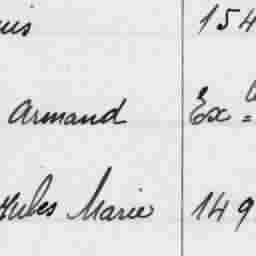 uis 154
Armand Ex =
Jules Marie 149